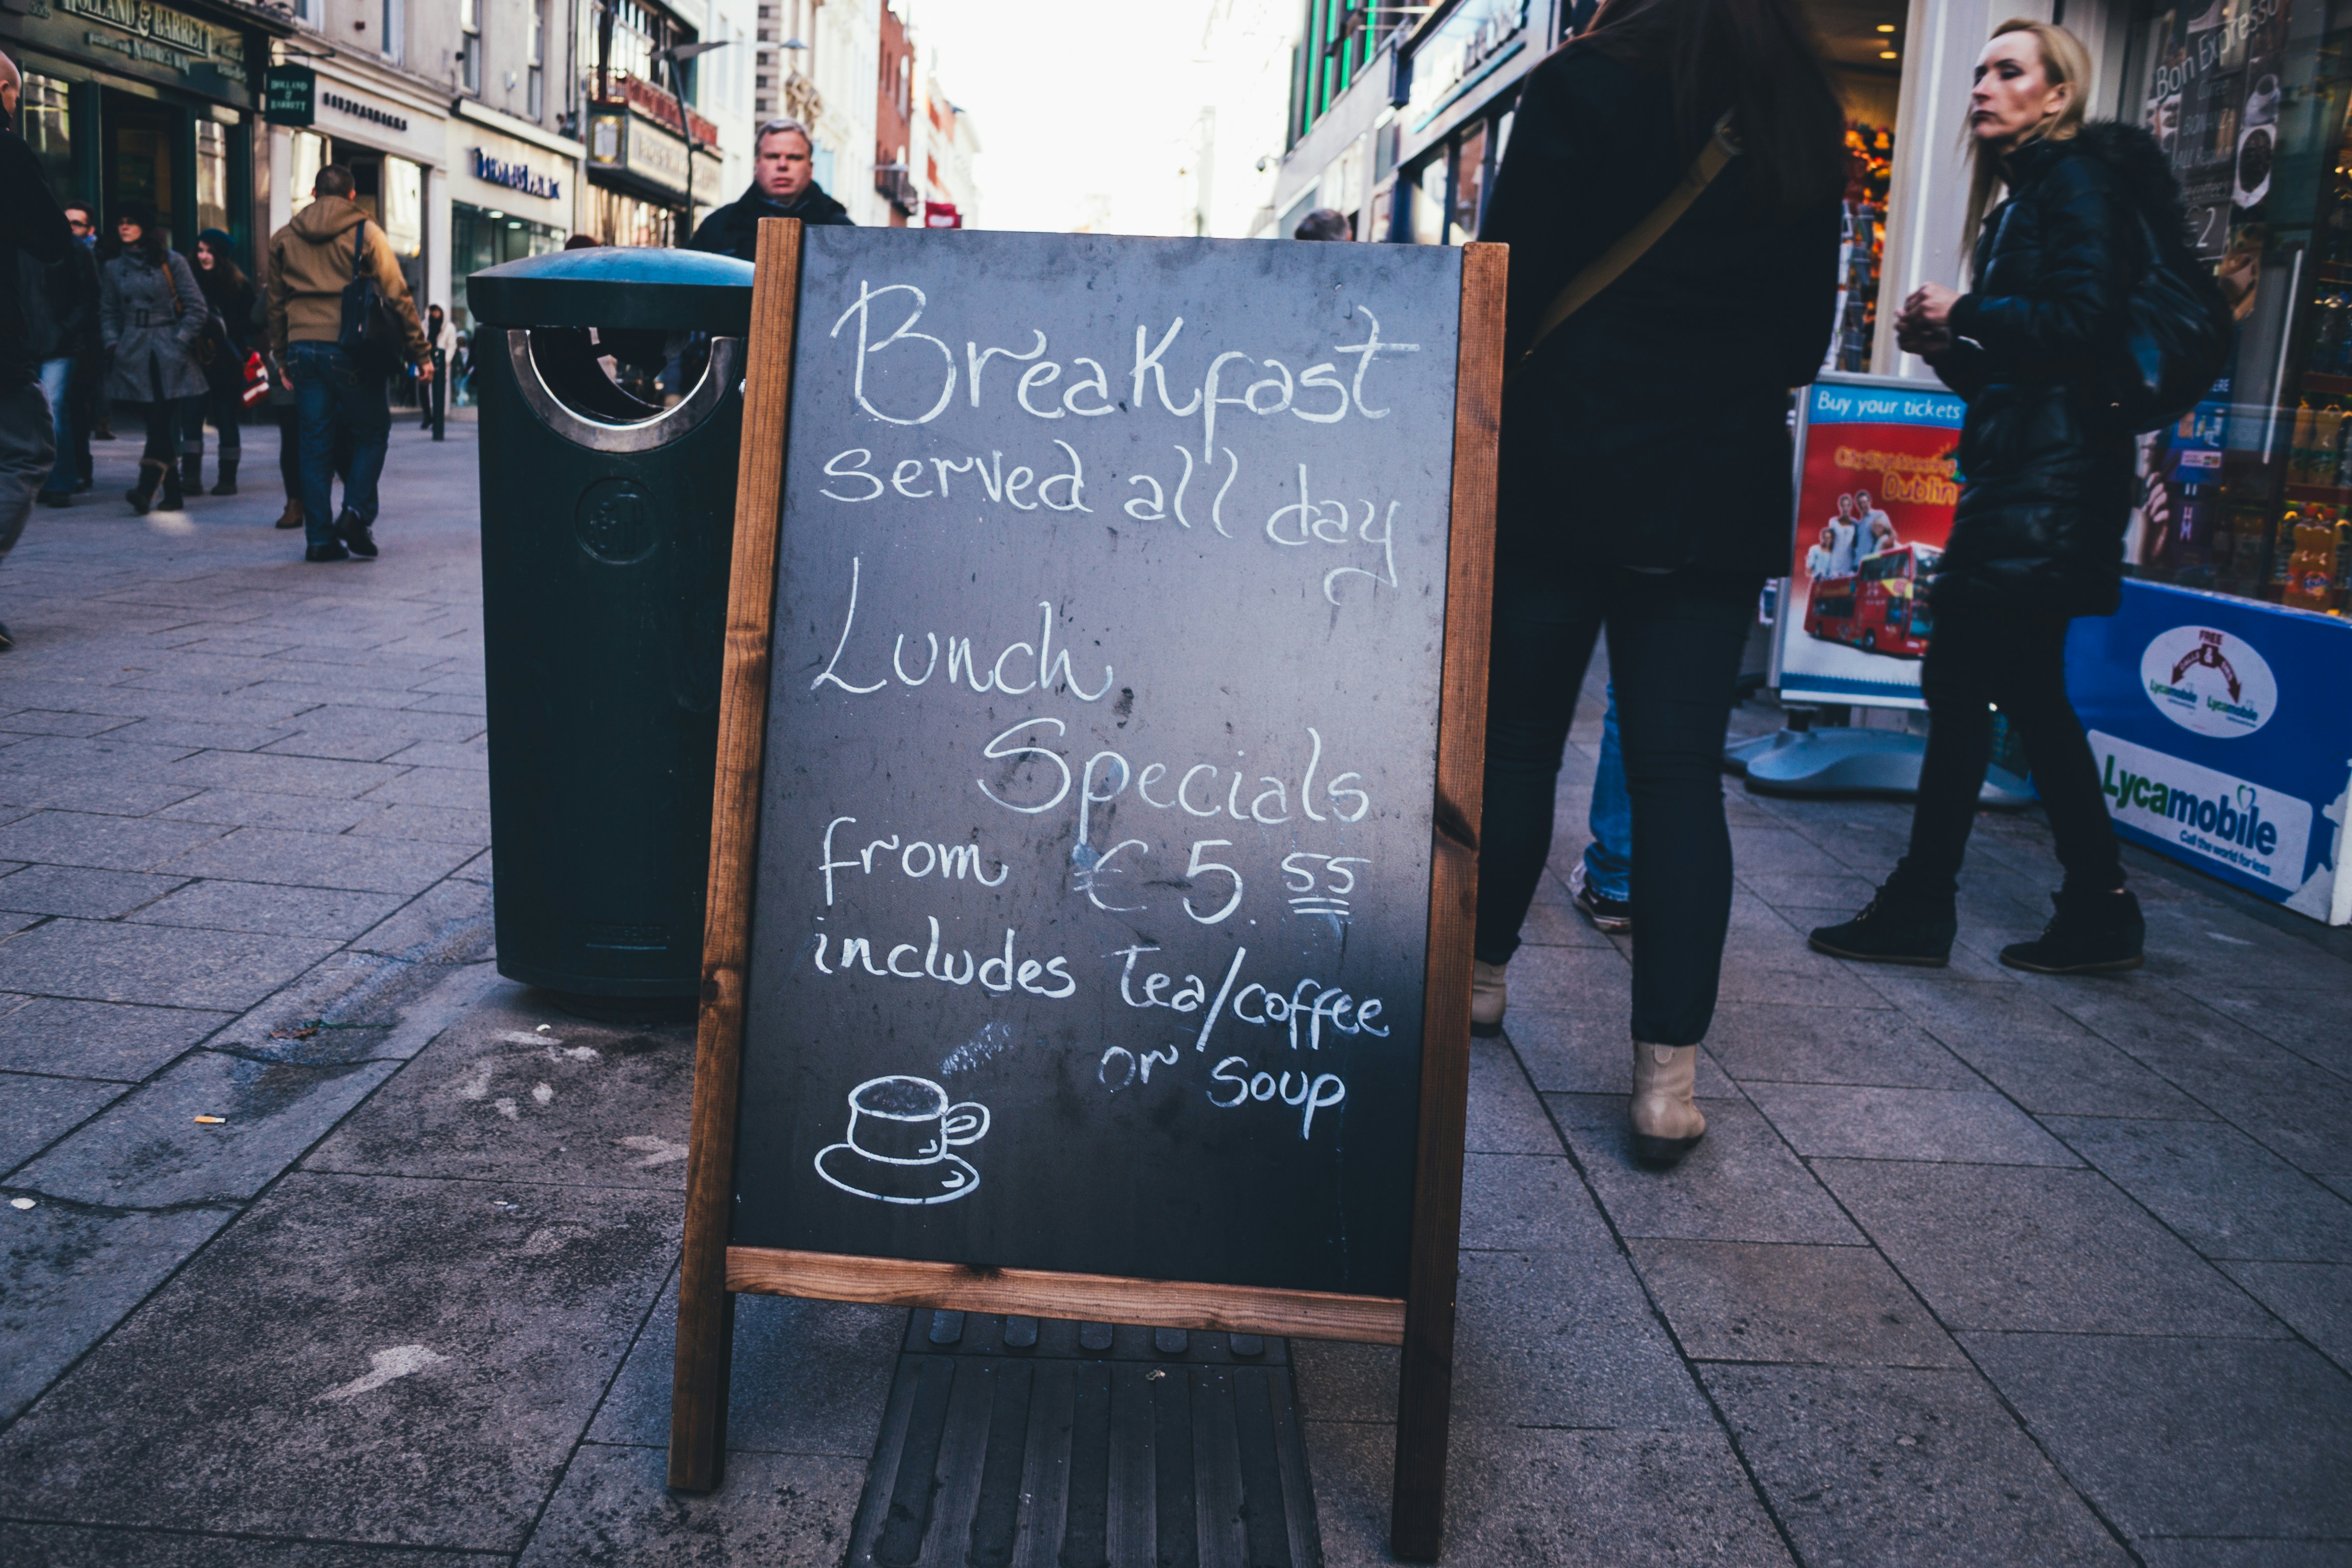 Breakfast
served all day
Lunch
Specials
from € 5.55
includes Tea/coffee
or soup
HOLLAND & BARRETT
HOLLAND
&
BARRETT
Buy your tickets
City Sightseeing
Dublin
Bon Espresso
FREE
&
Lycamobile
Lycamobile
Lycamobile
Call the world for less